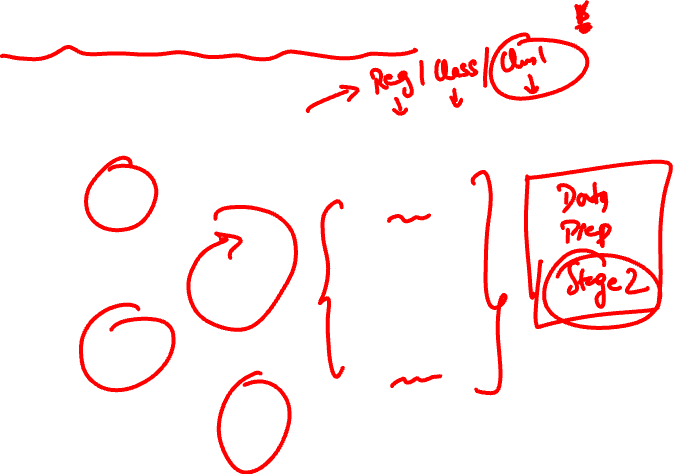 Reg | Class | Clus |
Data
Prep
Stage 2